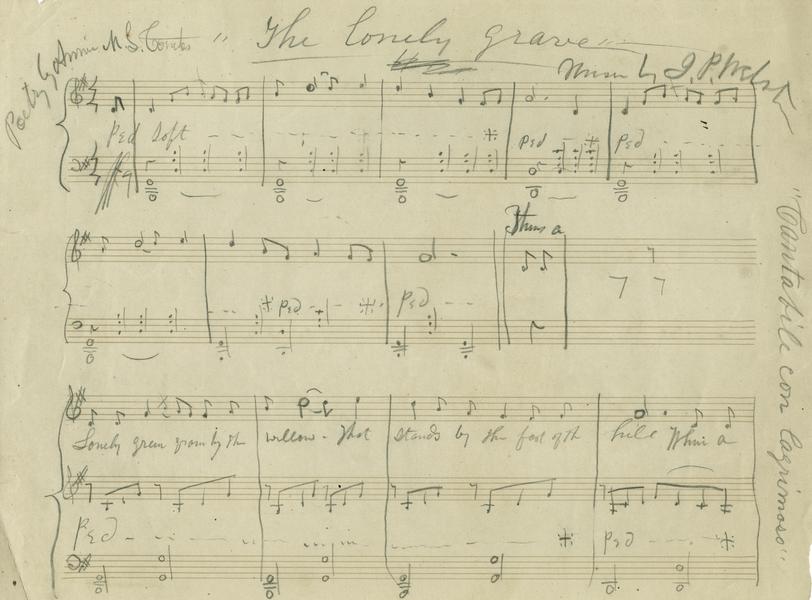 "The lonely grave"
Poetry by Annie M. S. Combs
Music by J. P. Webster
Ped Soft
Ped
Ped
"Cantabile con lagrimoso"
Theres a
Ped
Ped
Lonely green grave by the willow - that stands by the foot of the hill Theres a
Ped
Ped